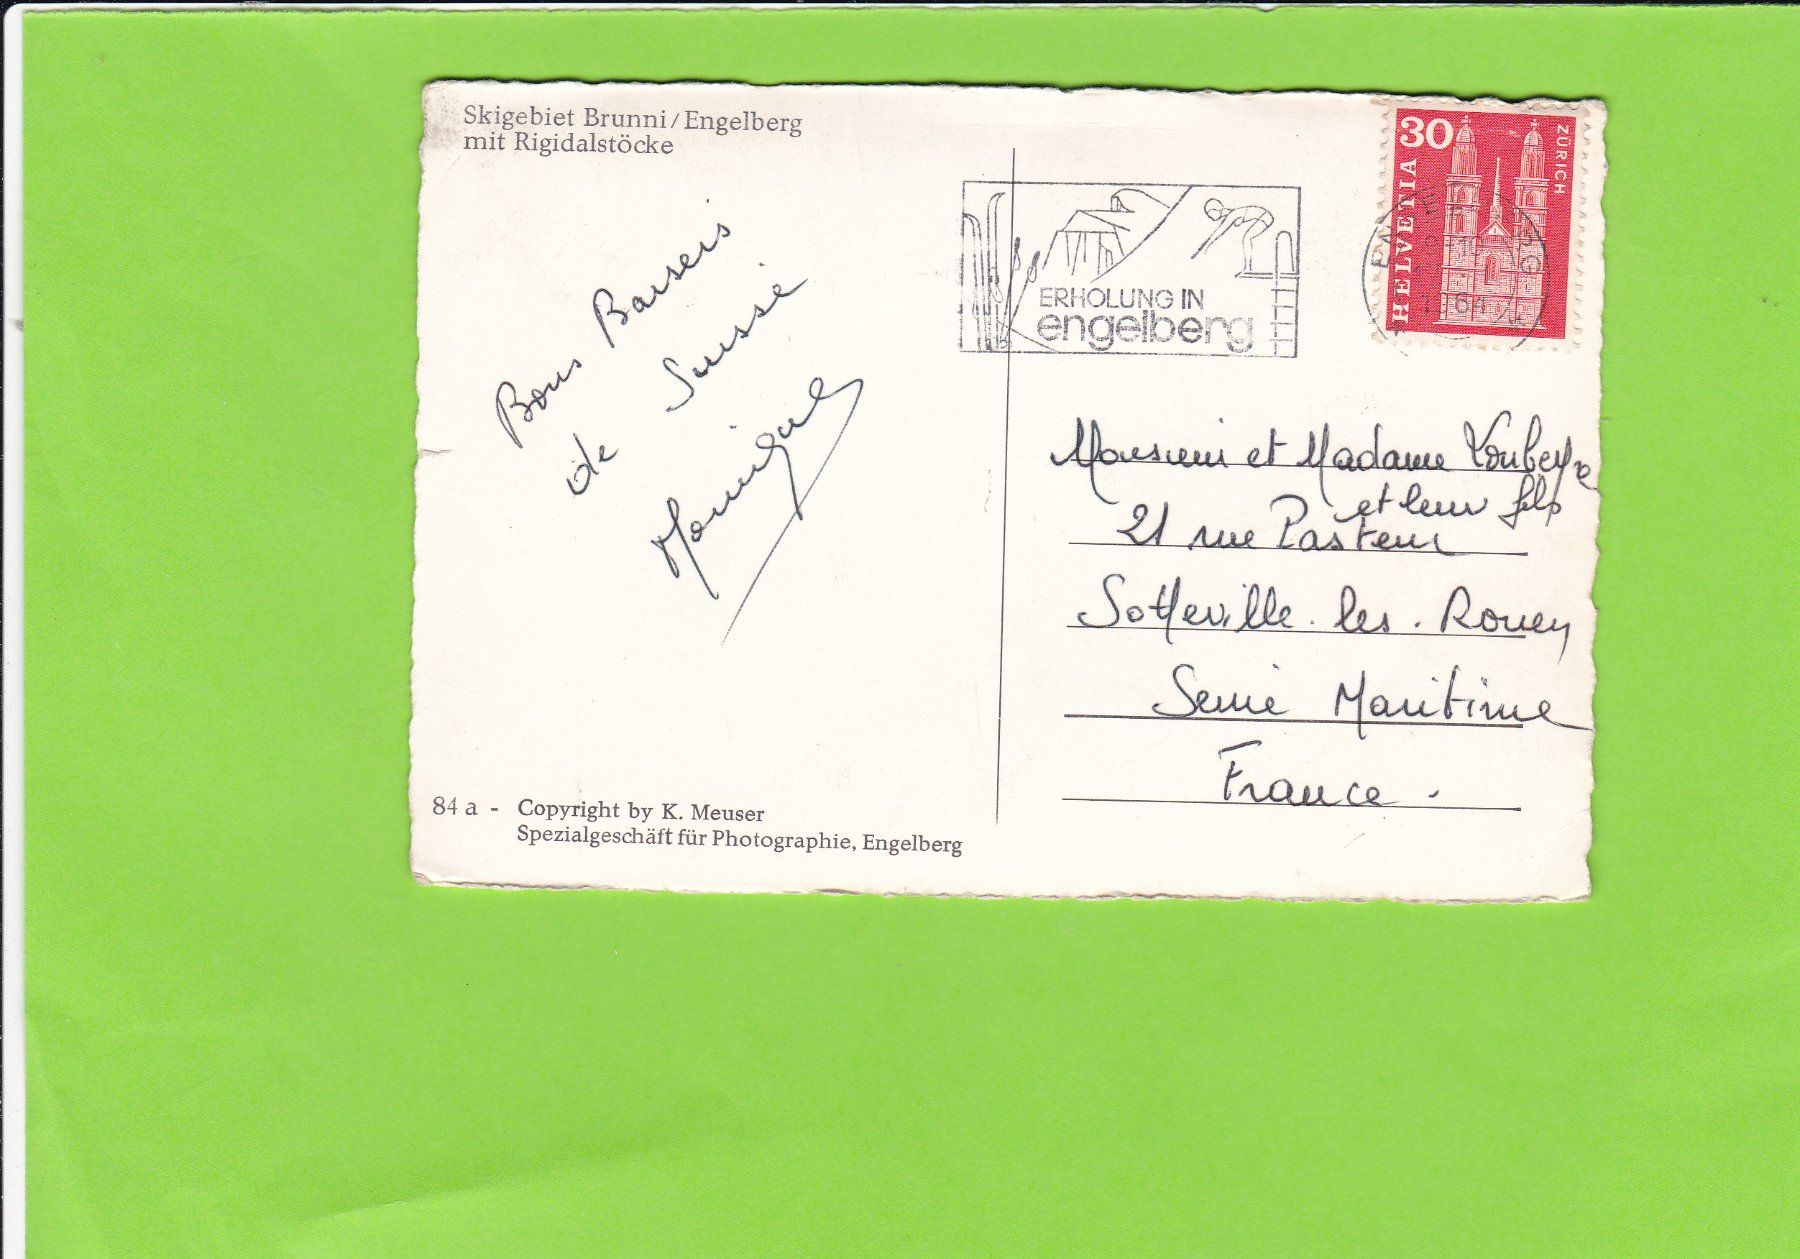 Skigebiet Brunni/Engelberg
mit Rigidalstöcke
Bons Baisers
de Suisse
Monique
84 a - Copyright by K. Meuser
Spezialgeschäft für Photographie, Engelberg
ERHOLUNG IN
engelberg
30
ZÜRICH
HELVETIA
Monsieur et Madame
et leur fils
21 rue Pasteur
Sotteville.les.Rouen
Seine Maritime
France.